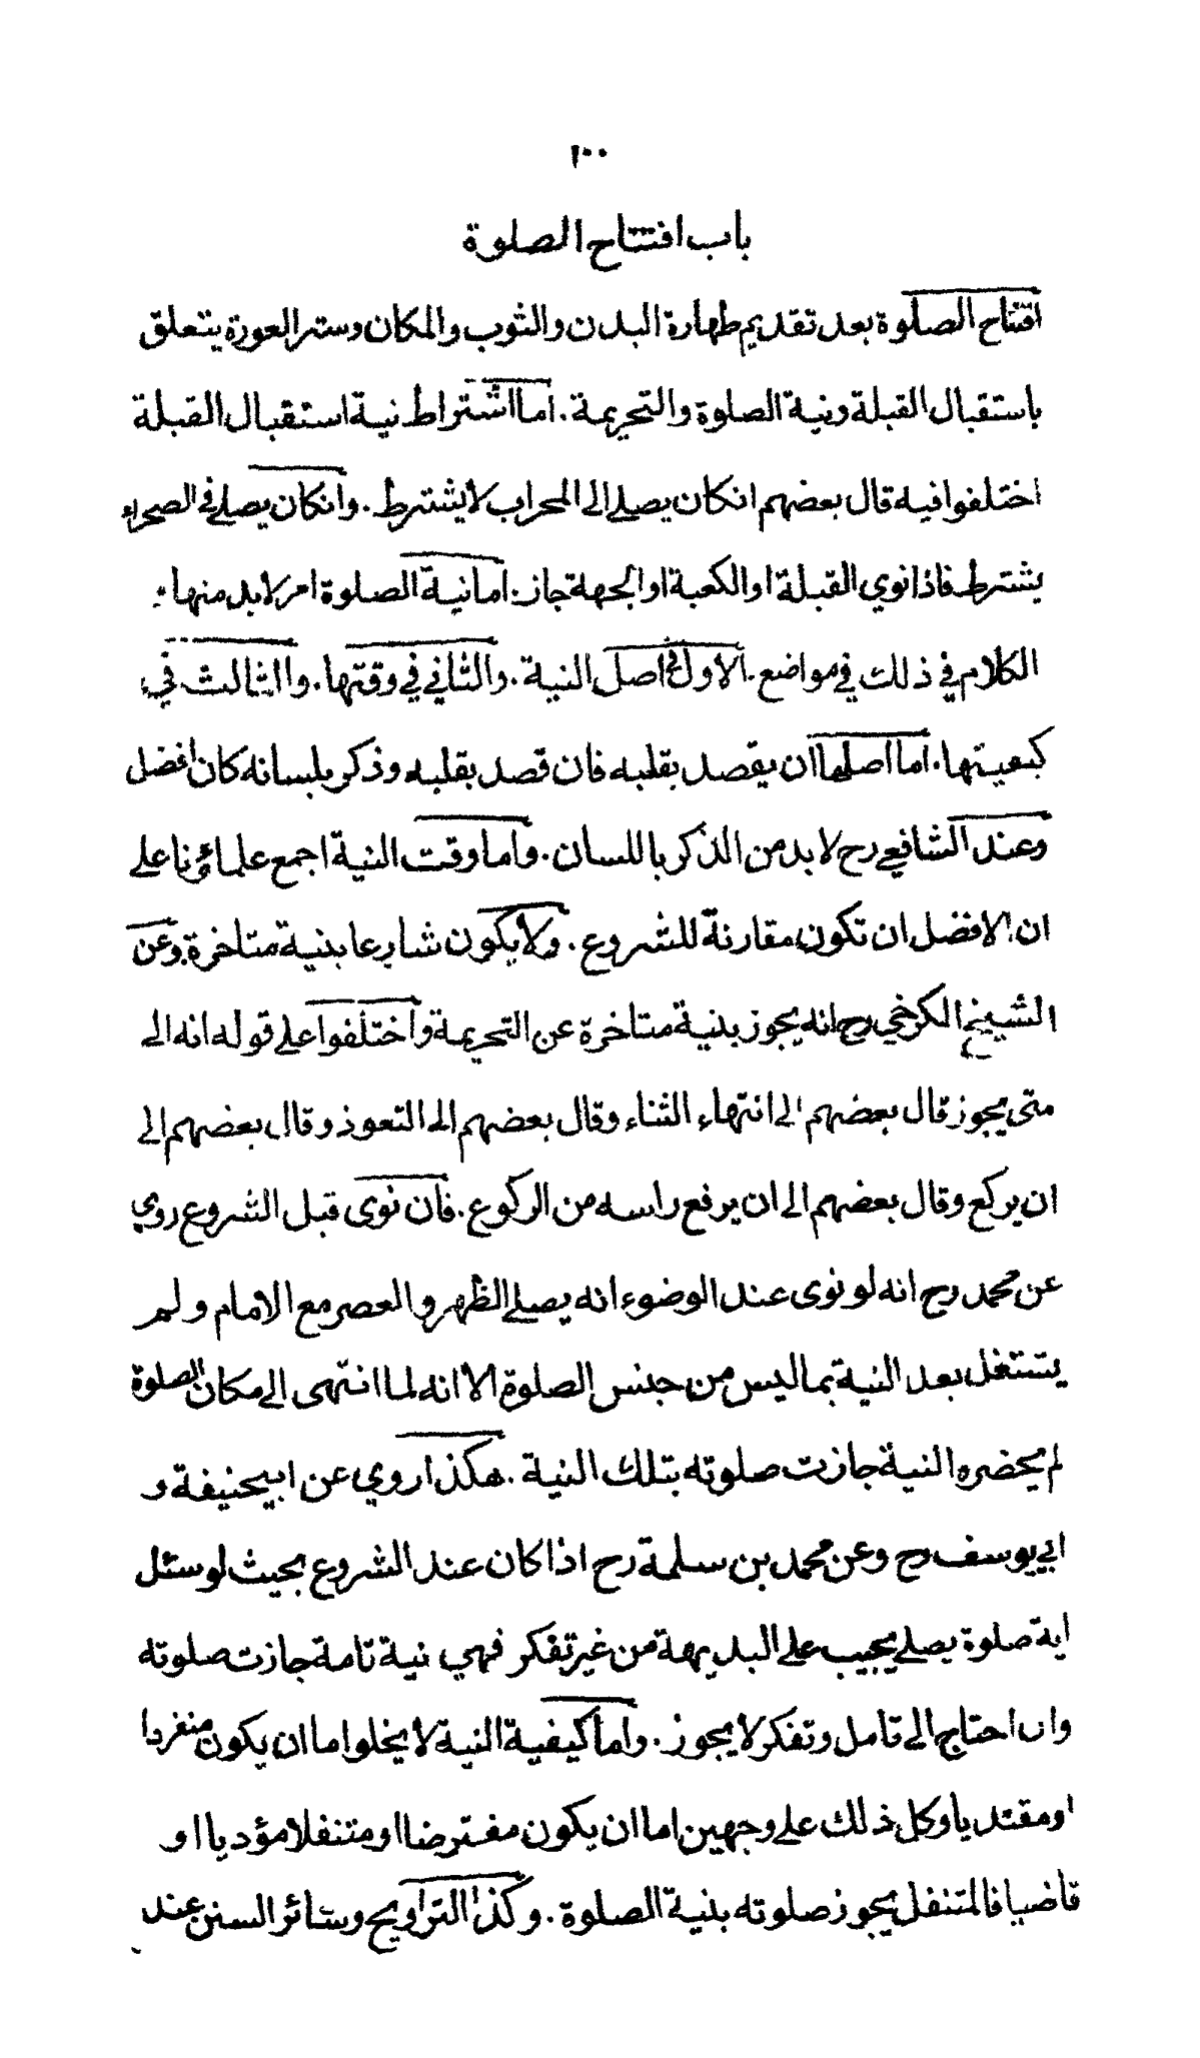 ١٠٠
باب افتتاح الصلوة
افتتاح الصلوة بعد تقديم طهارة البدن والثوب والمكان وستر العورة يتعلق
باستقبال القبلة ونية الصلوة والتحريمة . اما اشتراط نية استقبال القبلة
اختلفوا فيه قال بعضهم انكان يصلي الى المحراب لا يشترط . وانكان يصلي في الصحراء
يشترط فاذا نوي القبلة او الكعبة او الجهة جاز . اما نية الصلوة امر لابد منها .
الكلام في ذلك في مواضع . الاول في اصل النية . والثاني في وقتها . والثالث في
كيفيتها . اما اصلها ان يقصد بقلبه فان قصد بقلبه وذكر بلسانه كان افضل
وعند الشافعي رح لابد من الذكر باللسان . واما وقت النية اجمع علمائونا على
ان الافضل ان تكون مقارنة للشروع . ولا يكون شارعا بنية متاخرة وعن
الشيخ الكرخي رح انه يجوز بنية متاخرة عن التحريمة واختلفوا على قوله انه الى
متى يجوز قال بعضهم الى انتهاء الثناء وقال بعضهم الى التعوذ وقال بعضهم الى
ان يركع وقال بعضهم الى ان يرفع راسه من الركوع . فان نوى قبل الشروع روي
عن محمد رح انه لو نوى عند الوضوء انه يصلي الظهر والعصر مع الامام ولم
يشتغل بعد النية بما ليس من جنس الصلوة الا انه لما انتهى الى مكان الصلوة
لم يحضره النية جازت صلوته بتلك النية . هكذا روي عن ابيحنيفة و
ابي يوسف رح وعن محمد بن سلمة رح اذا كان عند الشروع بحيث لو سئل
اية صلوة يصلي يجيب على البديهة من غير تفكر فهي نية تامة جازت صلوته
وان احتاج الى تامل وتفكر لا يجوز . واما كيفية النية لا يخلوا اما ان يكون منفردا
او مقتديا وكل ذلك على وجهين اما ان يكون مفترضا او متنفلا مؤديا او
قاضيا فالمتنفل يجوز صلوته بنية الصلوة . وكذا التراويح وسائر السنن عند